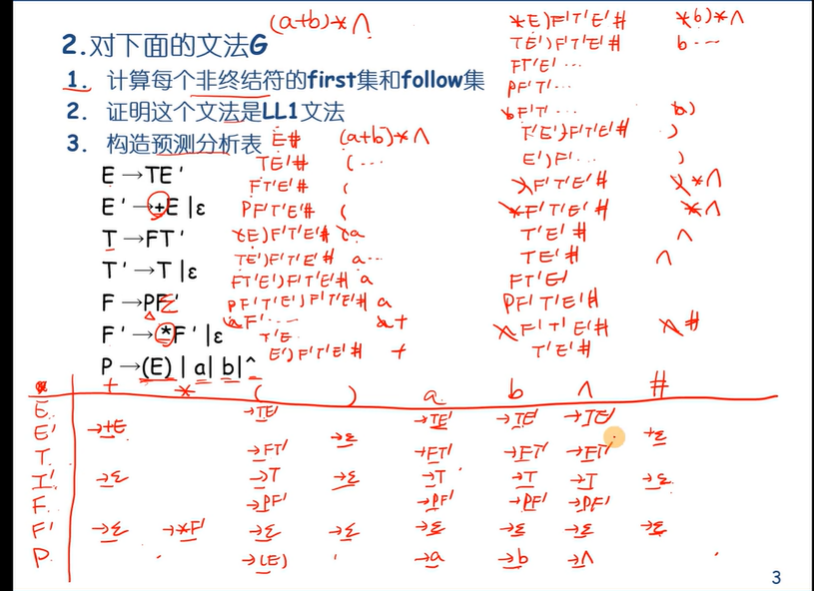 (a+b)*∧
2.对下面的文法G
1. 计算每个非终结符的first集和follow集
2. 证明这个文法是LL1文法
3. 构造预测分析表
E→TE'
E'→+E|ε
T→FT'
T'→T|ε
F→PF'
F'→*F'|ε
P→(E)|a|b|^
E# (a+b)*∧
TE'# (...
FT'E'# (
PF'T'E'# (
(E)F'T'E'# (a
TE')F'T'E'# a..
FT'E')F'T'E'# a
PF'T'E')F'T'E'# a
aF'... a+
T'E
E')F'T'E'# +
*E)F'T'E'# *b)*∧
TE')F'T'E'# b...
FT'E'...
PF'T'...
bF'T'... b)
T'E')F'T'E'# )
E')F'... )
)F'T'E'# )*∧
*F'T'E'# *∧
T'E'# ∧
TE'# ∧
FT'E'
PF'T'E'#
∧F'T'E'# ∧#
T'E'#
+ * ( ) a b ∧ #
E →TE' →TE' →TE' →TE'
E' →+E →ε →ε
T →FT' →FT' →FT' →FT'
T' →ε →T →ε →T →T →T →ε
F →PF' →PF' →PF' →PF'
F' →ε →*F' →ε →ε →ε →ε →ε →ε
P →(E) →a →b →∧
3